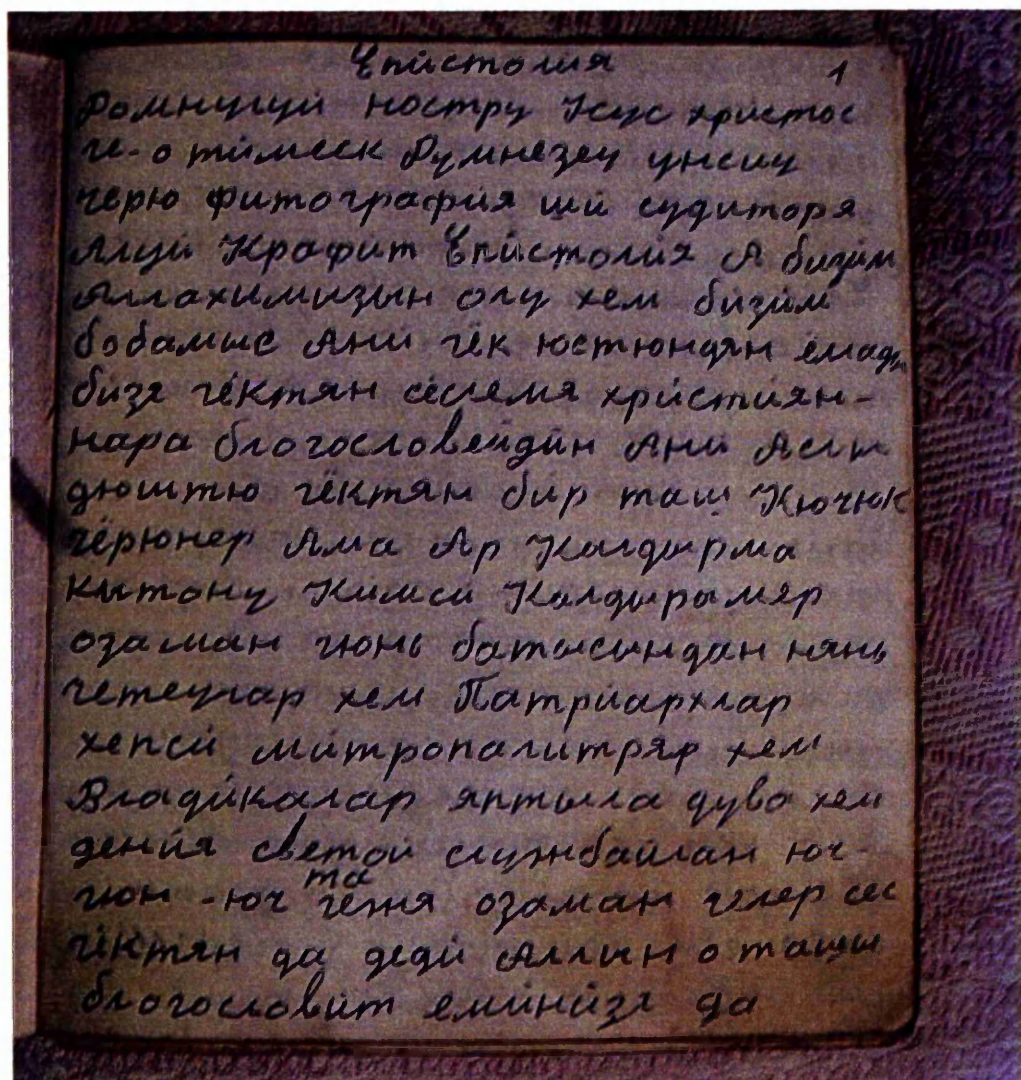 Епистолия 1
Домнулуй ностру Исус христос
че-о тимеск Думнезеу унсиу
черю фитография ши судиторя
Алуй Крафит Епистолия А бизим
Аллахимизын олу хем бизим
бобамыс Ани гёк юстюндян ёмады
бизя гёктян сеслемя християн-
нара благословейдин Ани Аслы
дюштю гёктян бир таш Кючюк
гёрюнер Ама Ар Калдырма
Кытону Кимси Калдырымер
озаман гюнь батысындан нянь
четеулар хем Патриархлар
хепси митропалитряр хем
Владикалар яптыла дуво хем
дения светой службайлан юч
гюн -юч та гежя озаман гелер сес
гёктян да деди Аллын о ташы
благословит елинизя да